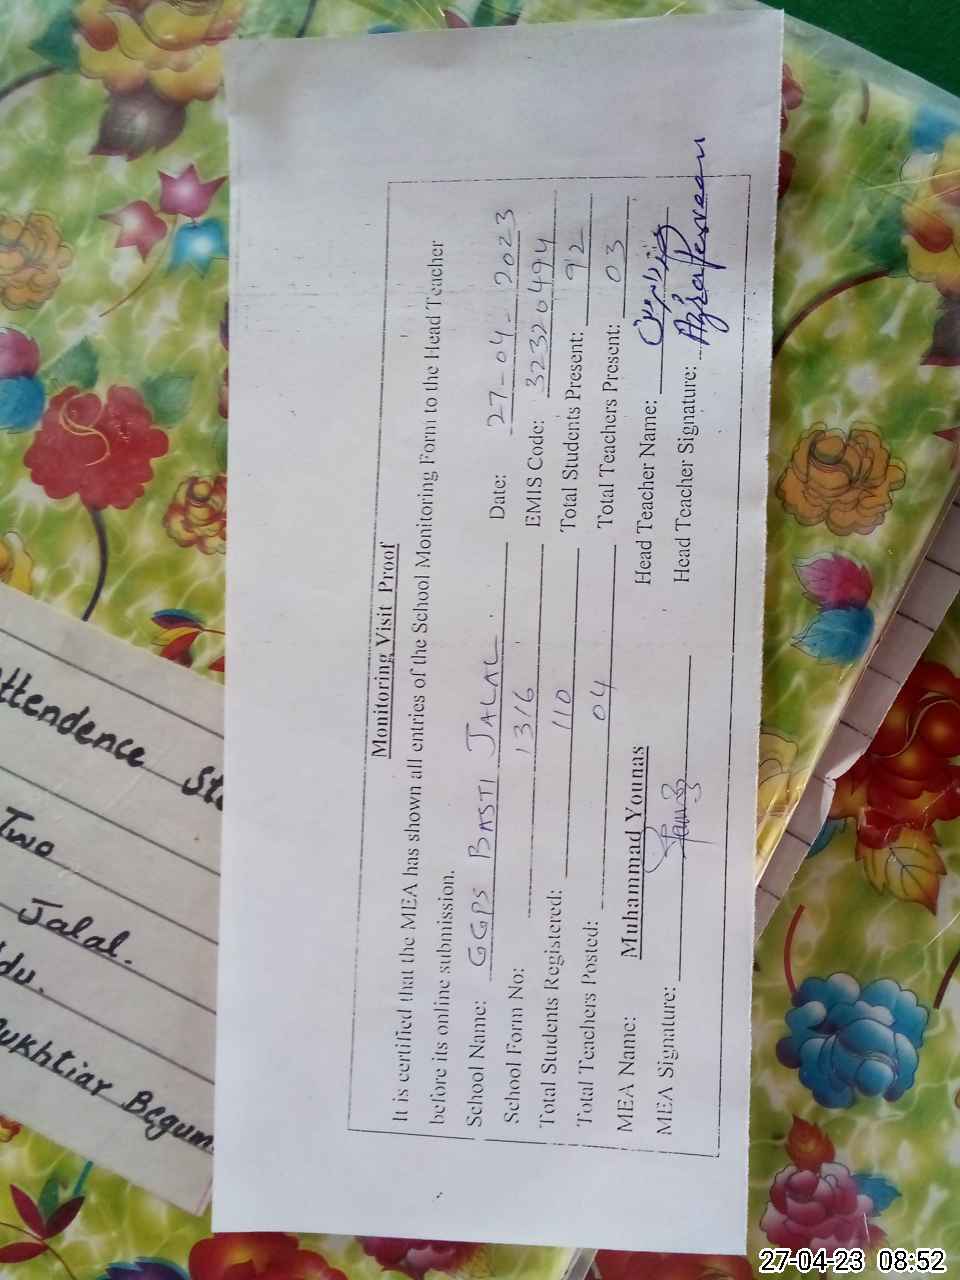 Monitoring Visit Proof
It is certified that the MEA has shown all entries of the School Monitoring Form to the Head Teacher
before its online submission.
School Name: GGPS BASTI JALAL. Date: 27-04-2023
School Form No: 1316 EMIS Code: 32320494
Total Students Registered: 110 Total Students Present: 92
Total Teachers Posted: 04 Total Teachers Present: 03
MEA Name: Muhammad Younas Head Teacher Name:
MEA Signature: Head Teacher Signature: Azra Perveen
Attendence
Two
Jalal.
Mukhtiar Begum
27-04-23 08:52